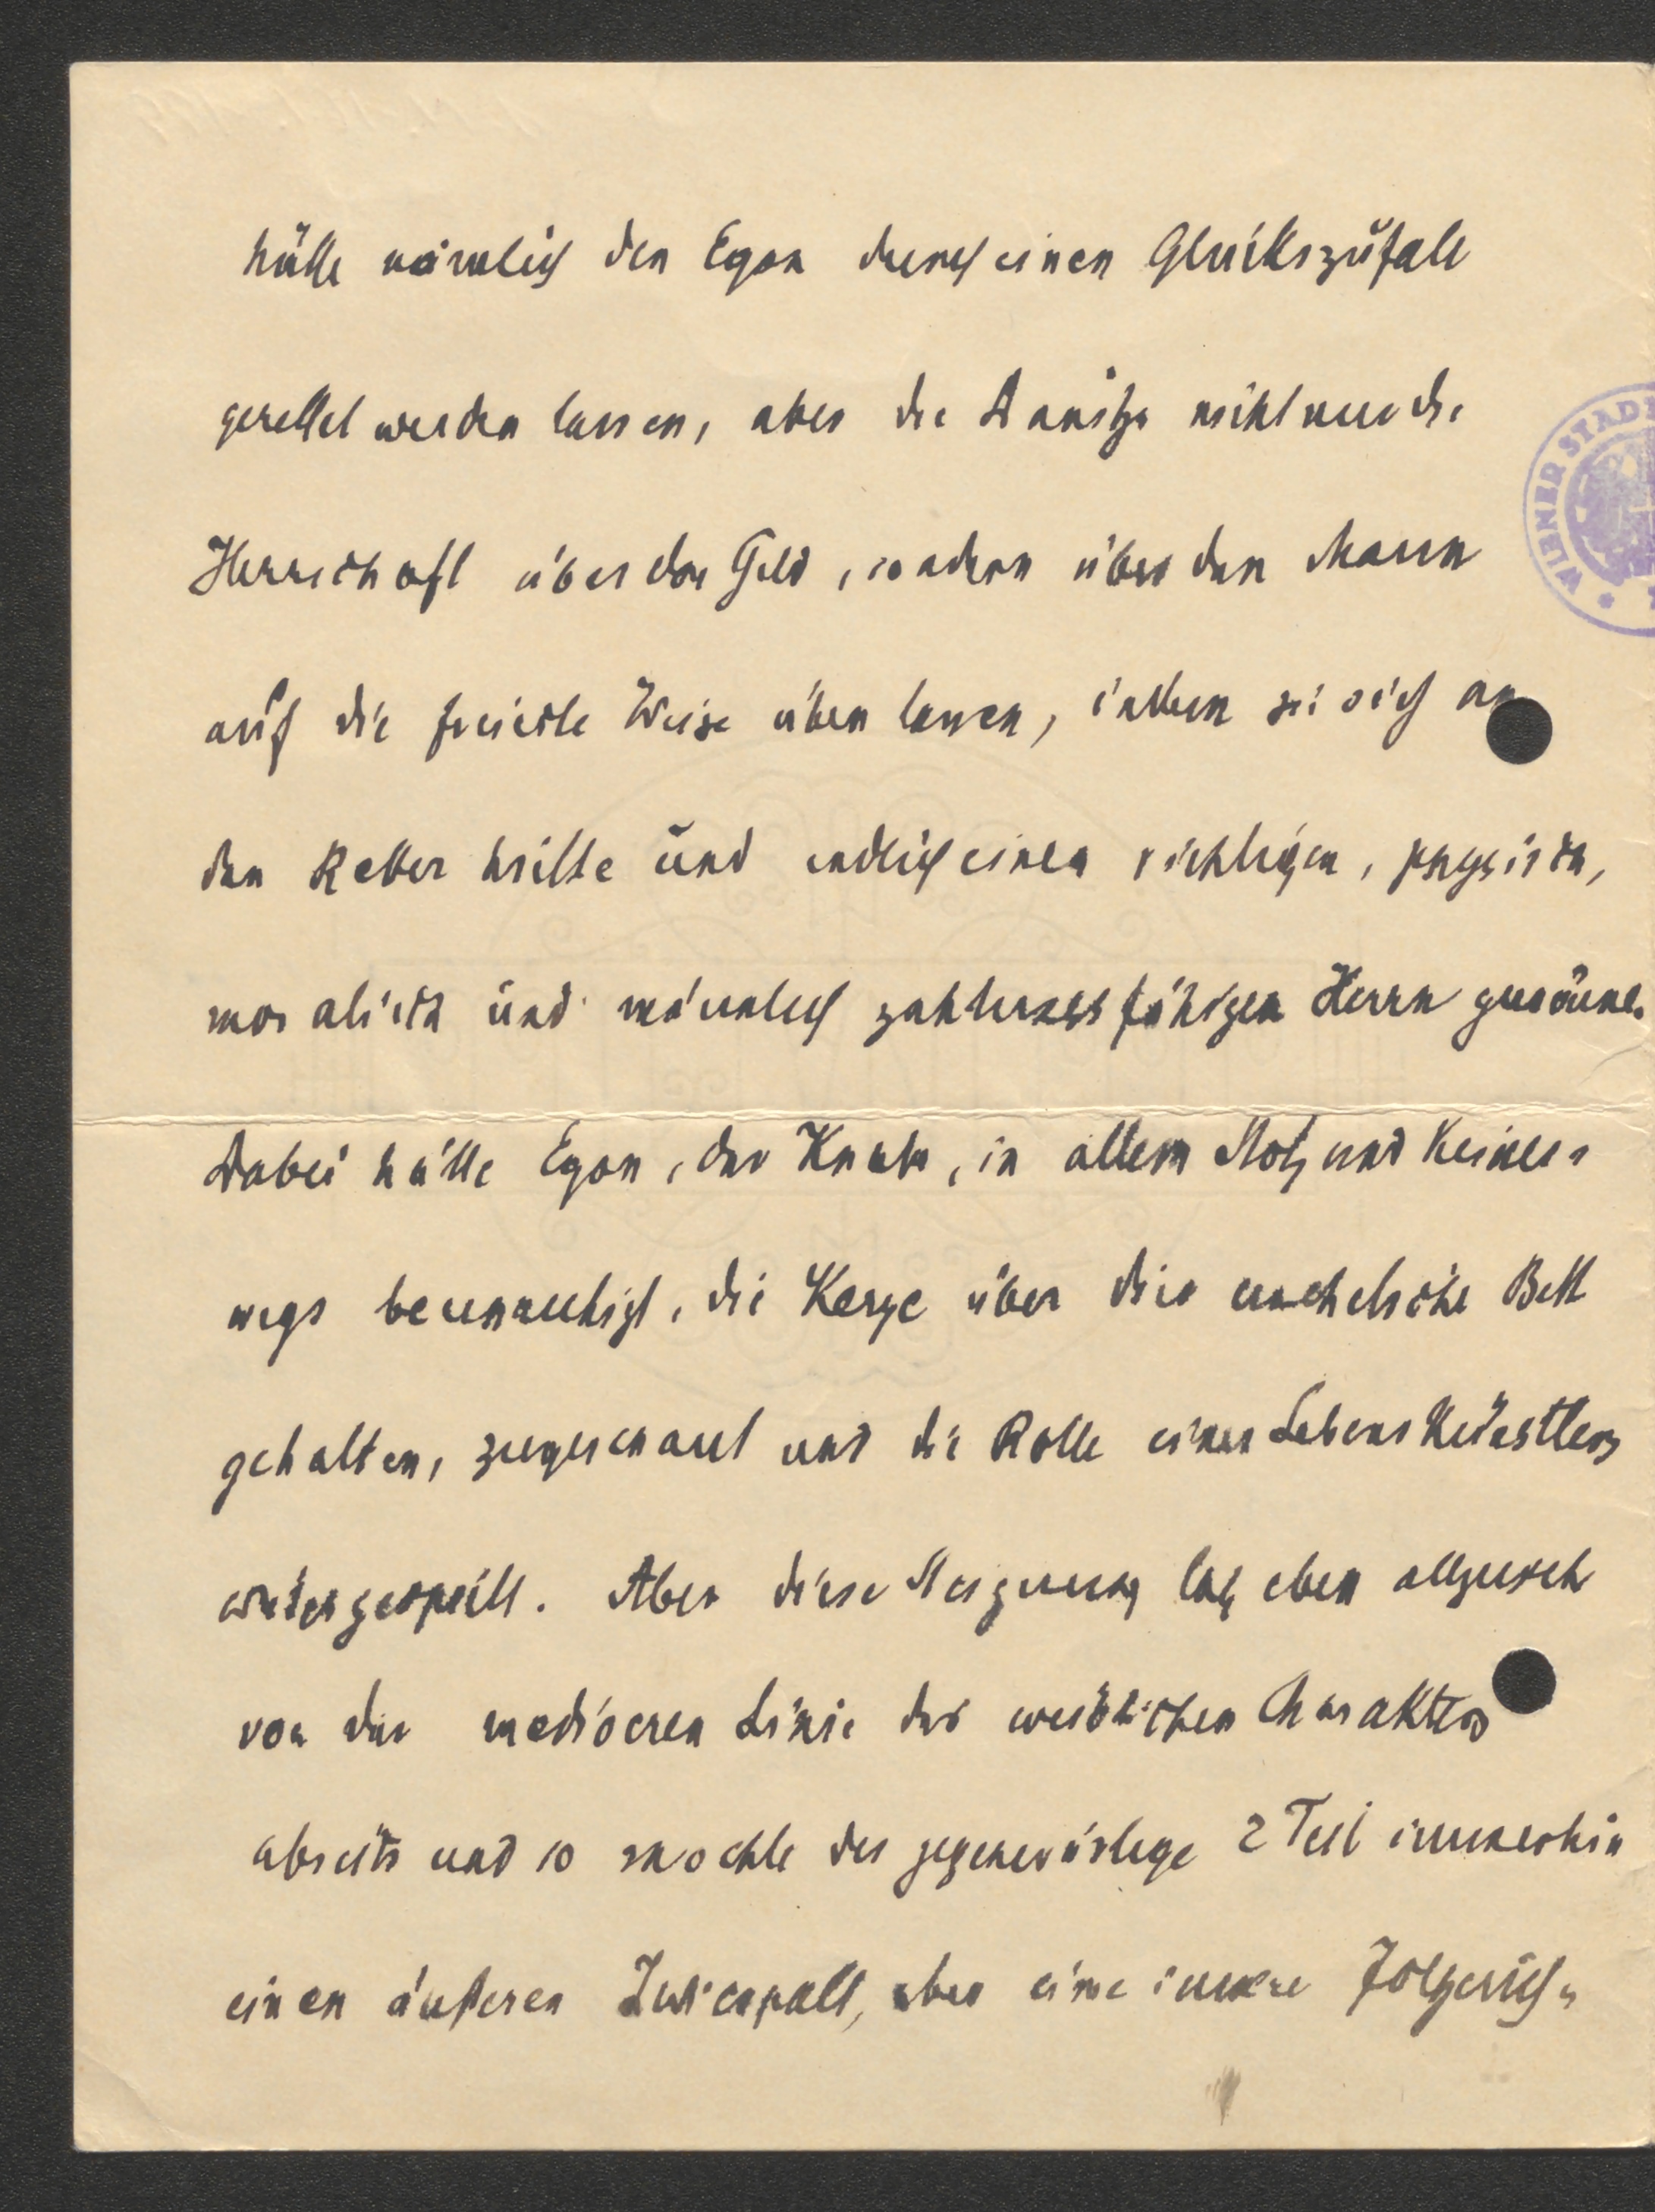 hätte nämlich den Egon durch einen Glückszufall
gerettet werden lassen, aber die Danitza nicht nur die
Herrschaft über das Geld, sondern über den Mann
auf die freieste Weise üben lassen, indem sie sich an
den Retter hielte und endlich einen richtigen, physisch,
moralisch und männlich zahlungsfähigen Herrn gewänne.
Dabei hätte Egon, der Knabe, in allem Stolz und keines-
wegs beunruhigt, die Kerze über dies uneheliche Bett
gehalten, zugeschaut und die Rolle eines Lebenskünstlers
weitergespielt. Aber diese Steigerung lag eben allzusehr
von der mediocren Linie des weiblichen Charakters
abseits und so mochte der gegenwärtige 2 Teil immerhin
einen äußeren Zwiespalt, aber eine innere Folgerich-
WIENER STAD